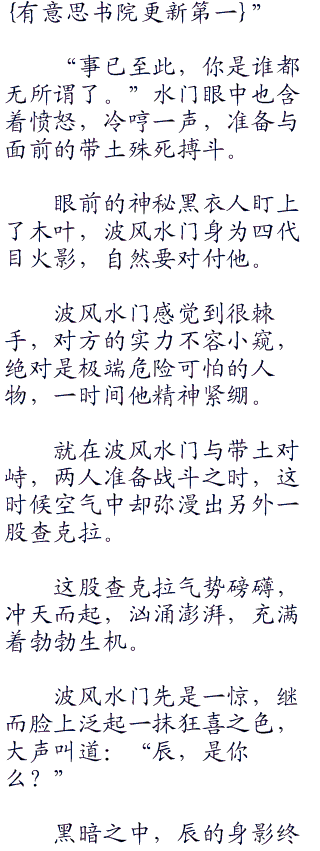 {有意思书院更新第一}”
“事已至此，你是谁都
无所谓了。”水门眼中也含
着愤怒，冷哼一声，准备与
面前的带土殊死搏斗。
眼前的神秘黑衣人盯上
了木叶，波风水门身为四代
目火影，自然要对付他。
波风水门感觉到很棘
手，对方的实力不容小窥，
绝对是极端危险可怕的人
物，一时间他精神紧绷。
就在波风水门与带土对
峙，两人准备战斗之时，这
时候空气中却弥漫出另外一
股查克拉。
这股查克拉气势磅礴，
冲天而起，汹涌澎湃，充满
着勃勃生机。
波风水门先是一惊，继
而脸上泛起一抹狂喜之色，
大声叫道：“辰，是你
么？”
黑暗之中，辰的身影终